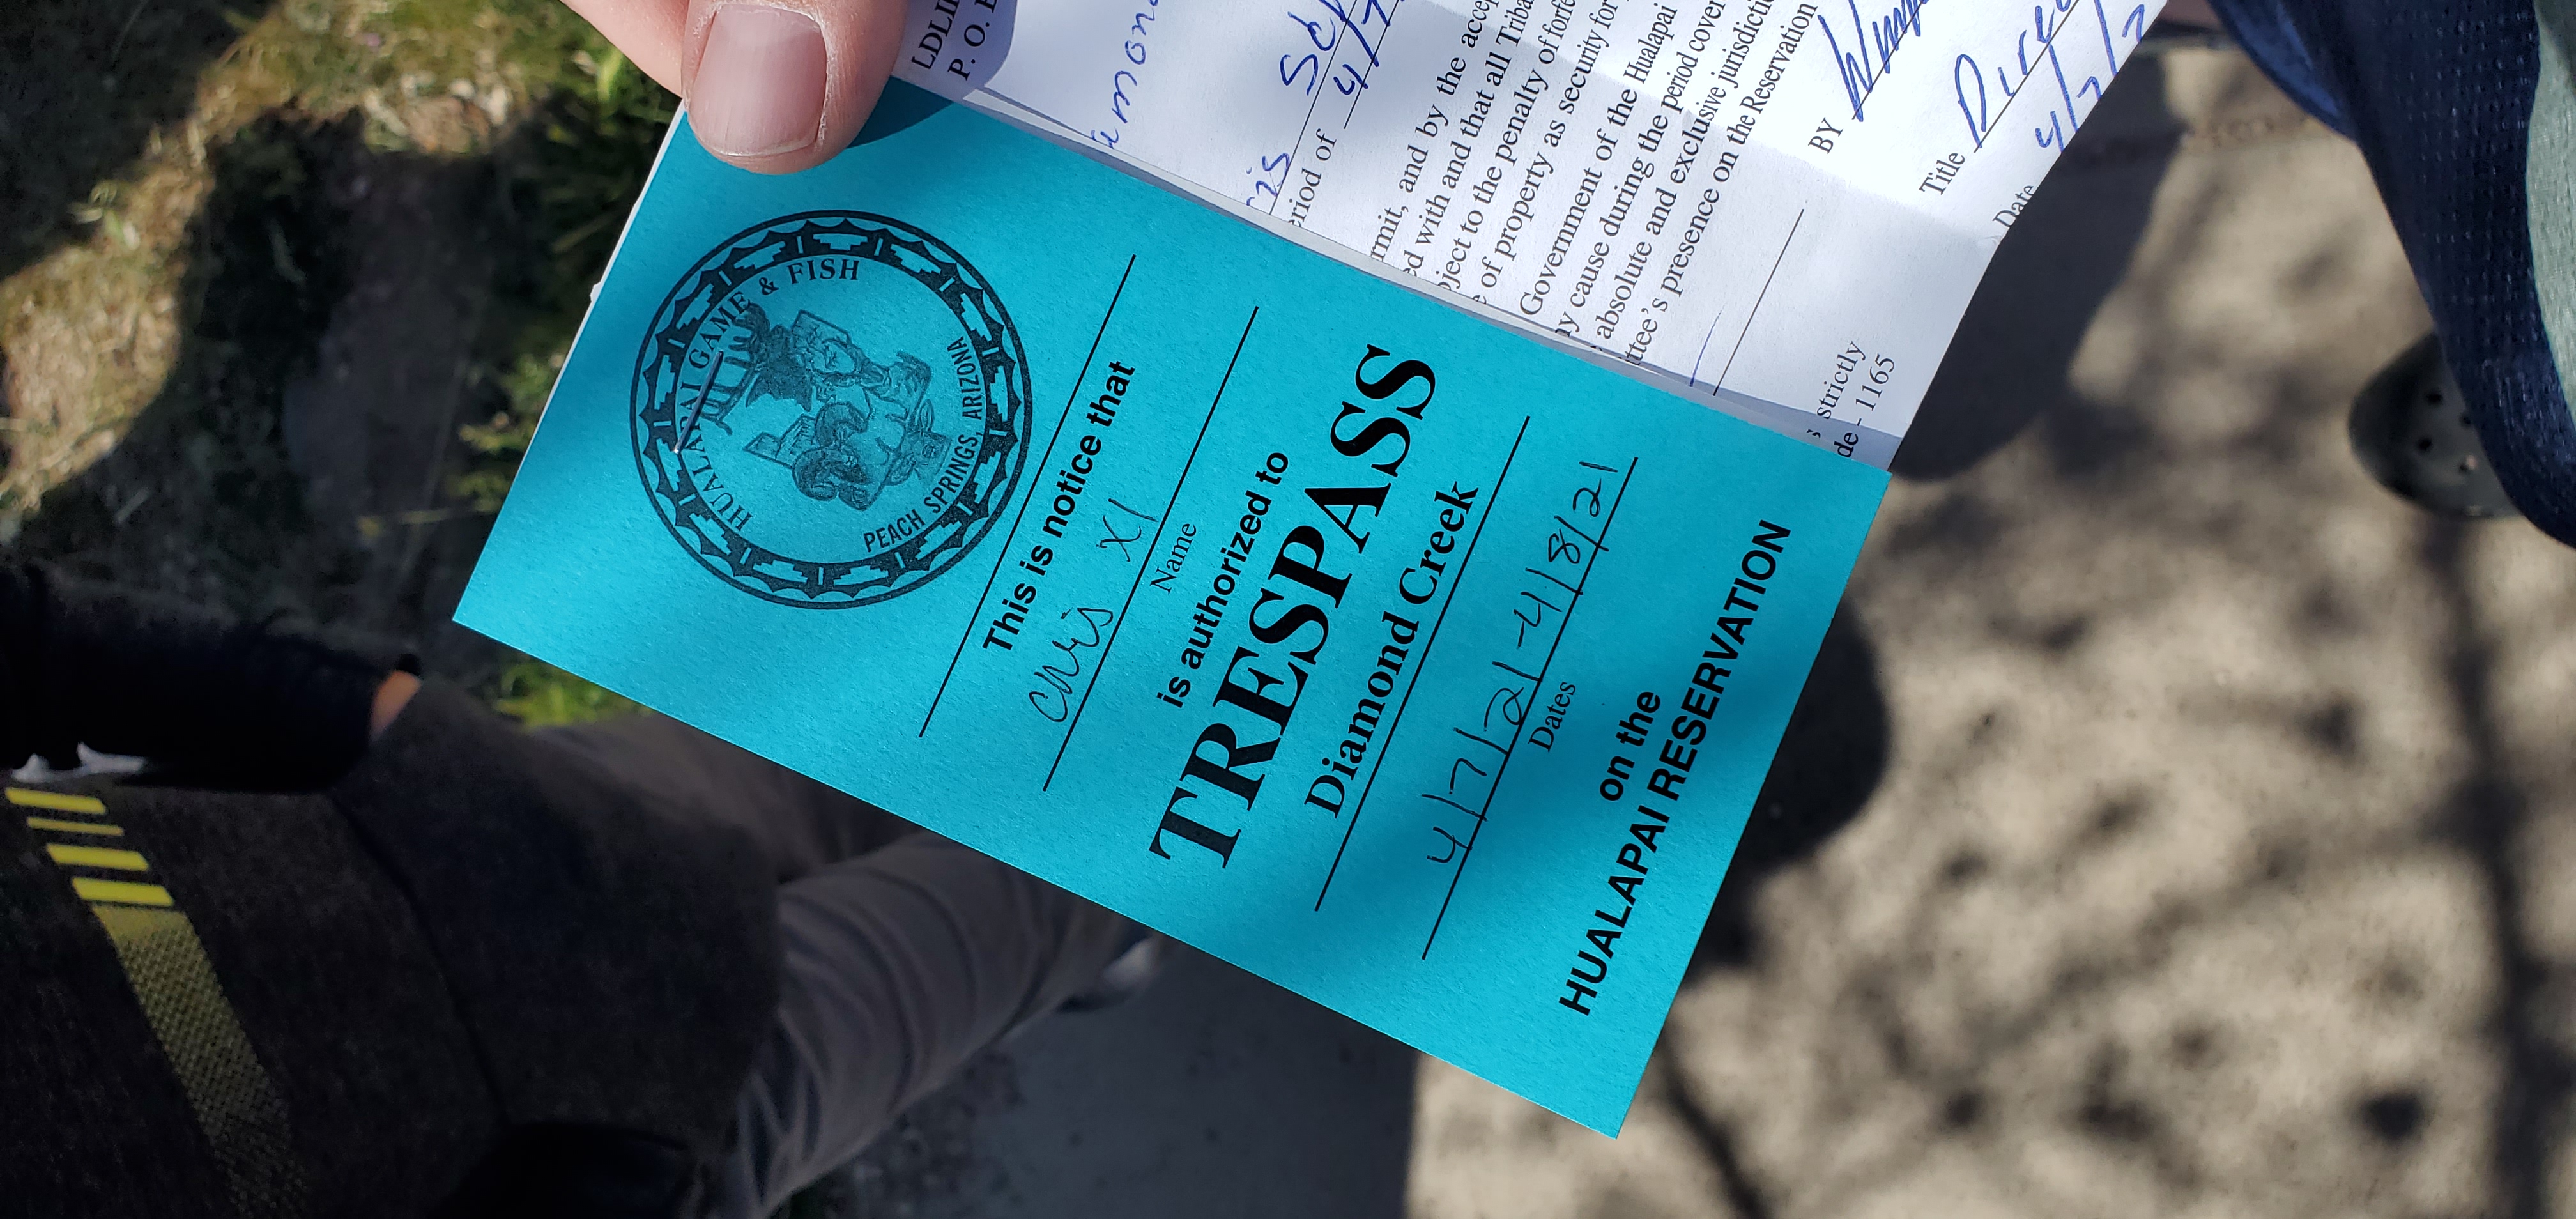 HUALAPAI GAME & FISH
PEACH SPRINGS, ARIZONA
This is notice that
Chris X1
Name
is authorized to
TRESPASS
Diamond Creek
4/7/21-4/8/21
Dates
on the
HUALAPAI RESERVATION
P. O.
amon
ris Sch
eriod of 4/7
rmit, and by the acce
ed with and that all Triba
bject to the penalty of forfe
e of property as security for
Government of the Hualapai
ny cause during the period cover
absolute and exclusive jurisdicti
ttee's presence on the Reservation
s strictly
de - 1165
BY
Title Direc
Date 4/7/2